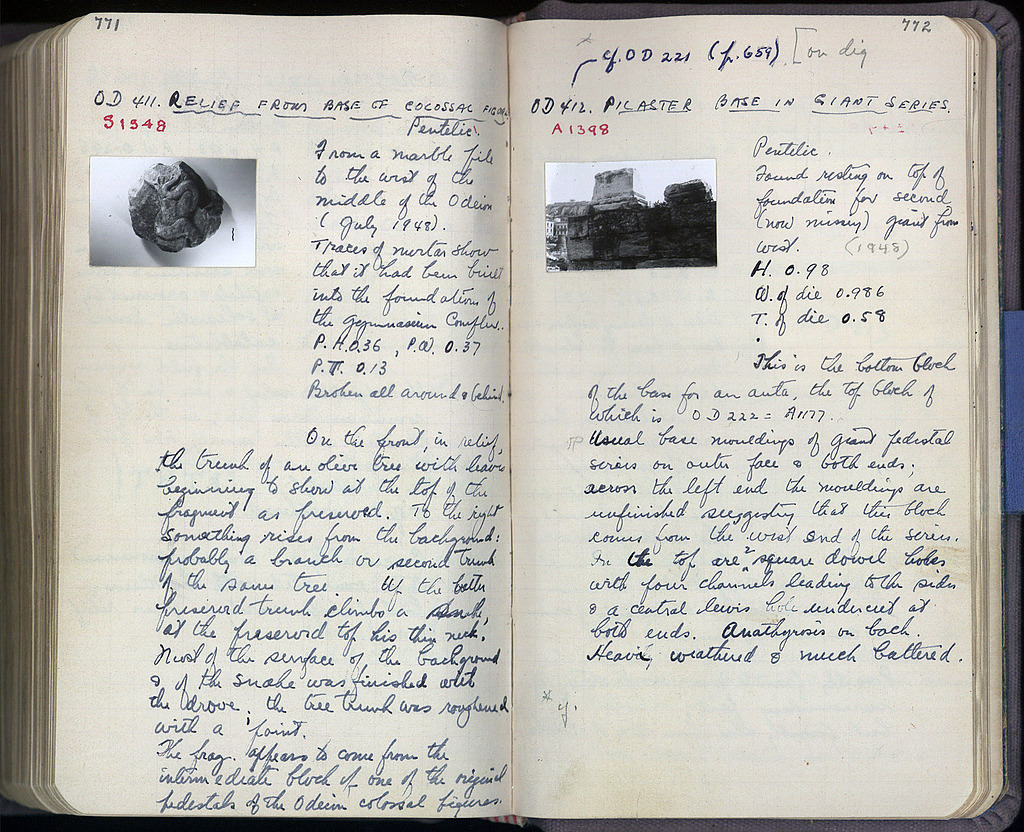 771
OD 411. RELIEF FROM BASE OF COLOSSAL FIGURE
S 1348
Pentelic.
From a marble pile
to the west of the
middle of the Odeion
(July 1948).
Traces of mortar show
that it had been built
into the foundations of
the Gymnasium Complex.
P.H. 0.36, P.W. 0.37
P.T. 0.13
Broken all around & behind.
On the front, in relief,
the trunk of an olive tree with leaves
beginning to show at the top of the
fragment as preserved. To the right
something rises from the background:
probably a branch or second trunk
of the same tree. Up the better
preserved trunk climbs a snake,
at the preserved top his thin neck.
Most of the surface of the background
& of the snake was finished with
the drove; the tree trunk was roughened
with a point.
The frag. appears to come from the
intermediate block of one of the original
pedestals of the Odeion colossal figures.
772
* cf. OD 221 (p. 659) [on dig
OD 412. PILASTER BASE IN GIANT SERIES.
A 1398
Pentelic.
Found resting on top of
foundation for second
(now missing) giant from
west. (1948)
H. 0.98
W. of die 0.986
T. of die 0.58
This is the bottom block
of the base for an anta, the top block of
which is OD 222 = A1177.
Usual base mouldings of giant pedestal
series on outer face & both ends;
across the left end the mouldings are
unfinished suggesting that this block
comes from the west end of the series.
In the top are 2 square dowel holes
with four channels leading to the sides
& a central lewis hole undercut at
both ends. Anathyrosis on back.
Heavily weathered & much battered.
* cf.